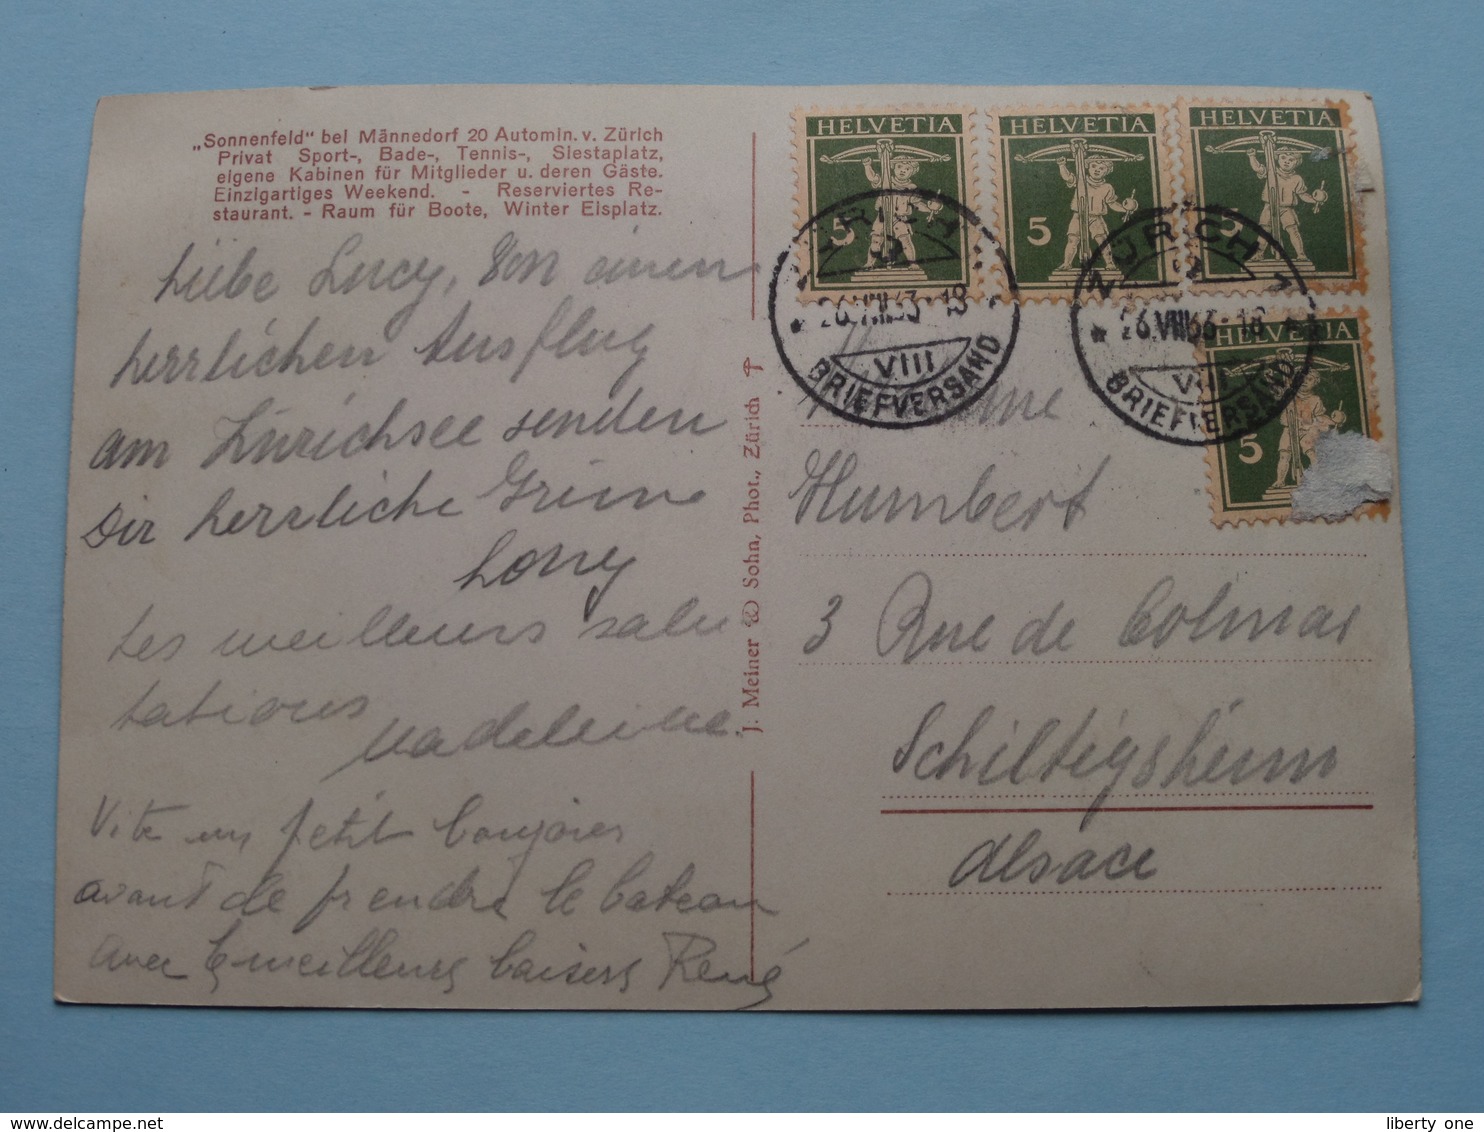 „Sonnenfeld" bei Männedorf 20 Automin. v. Zürich
Privat Sport-, Bade-, Tennis-, Siestaplatz,
eigene Kabinen für Mitglieder u. deren Gäste.
Einzigartiges Weekend. - Reserviertes Re-
staurant. - Raum für Boote, Winter Eisplatz.
Liebe Lucy, Von einen
herrlichen Ausflug
am Zürichsee senden
Dir herrliche Grüsse
Lony
Les meilleurs salu
tations
Madeleine.
Vite un petit bonjour
avant de prendre le bateau
avec les meilleurs baisers René
J. Meiner & Sohn, Phot., Zürich
HELVETIA
5
HELVETIA
5
HELVETIA
5
HELVETIA
5
ZÜRICH
26.VIII.33-18
VIII
BRIEFVERSAND
ZÜRICH 1
26.VIII.33-18
VIII
BRIEFVERSAND
Humbert
3 Rue de Colmar
Schiltigsheim
Alsace
www.delcampe.net
liberty one